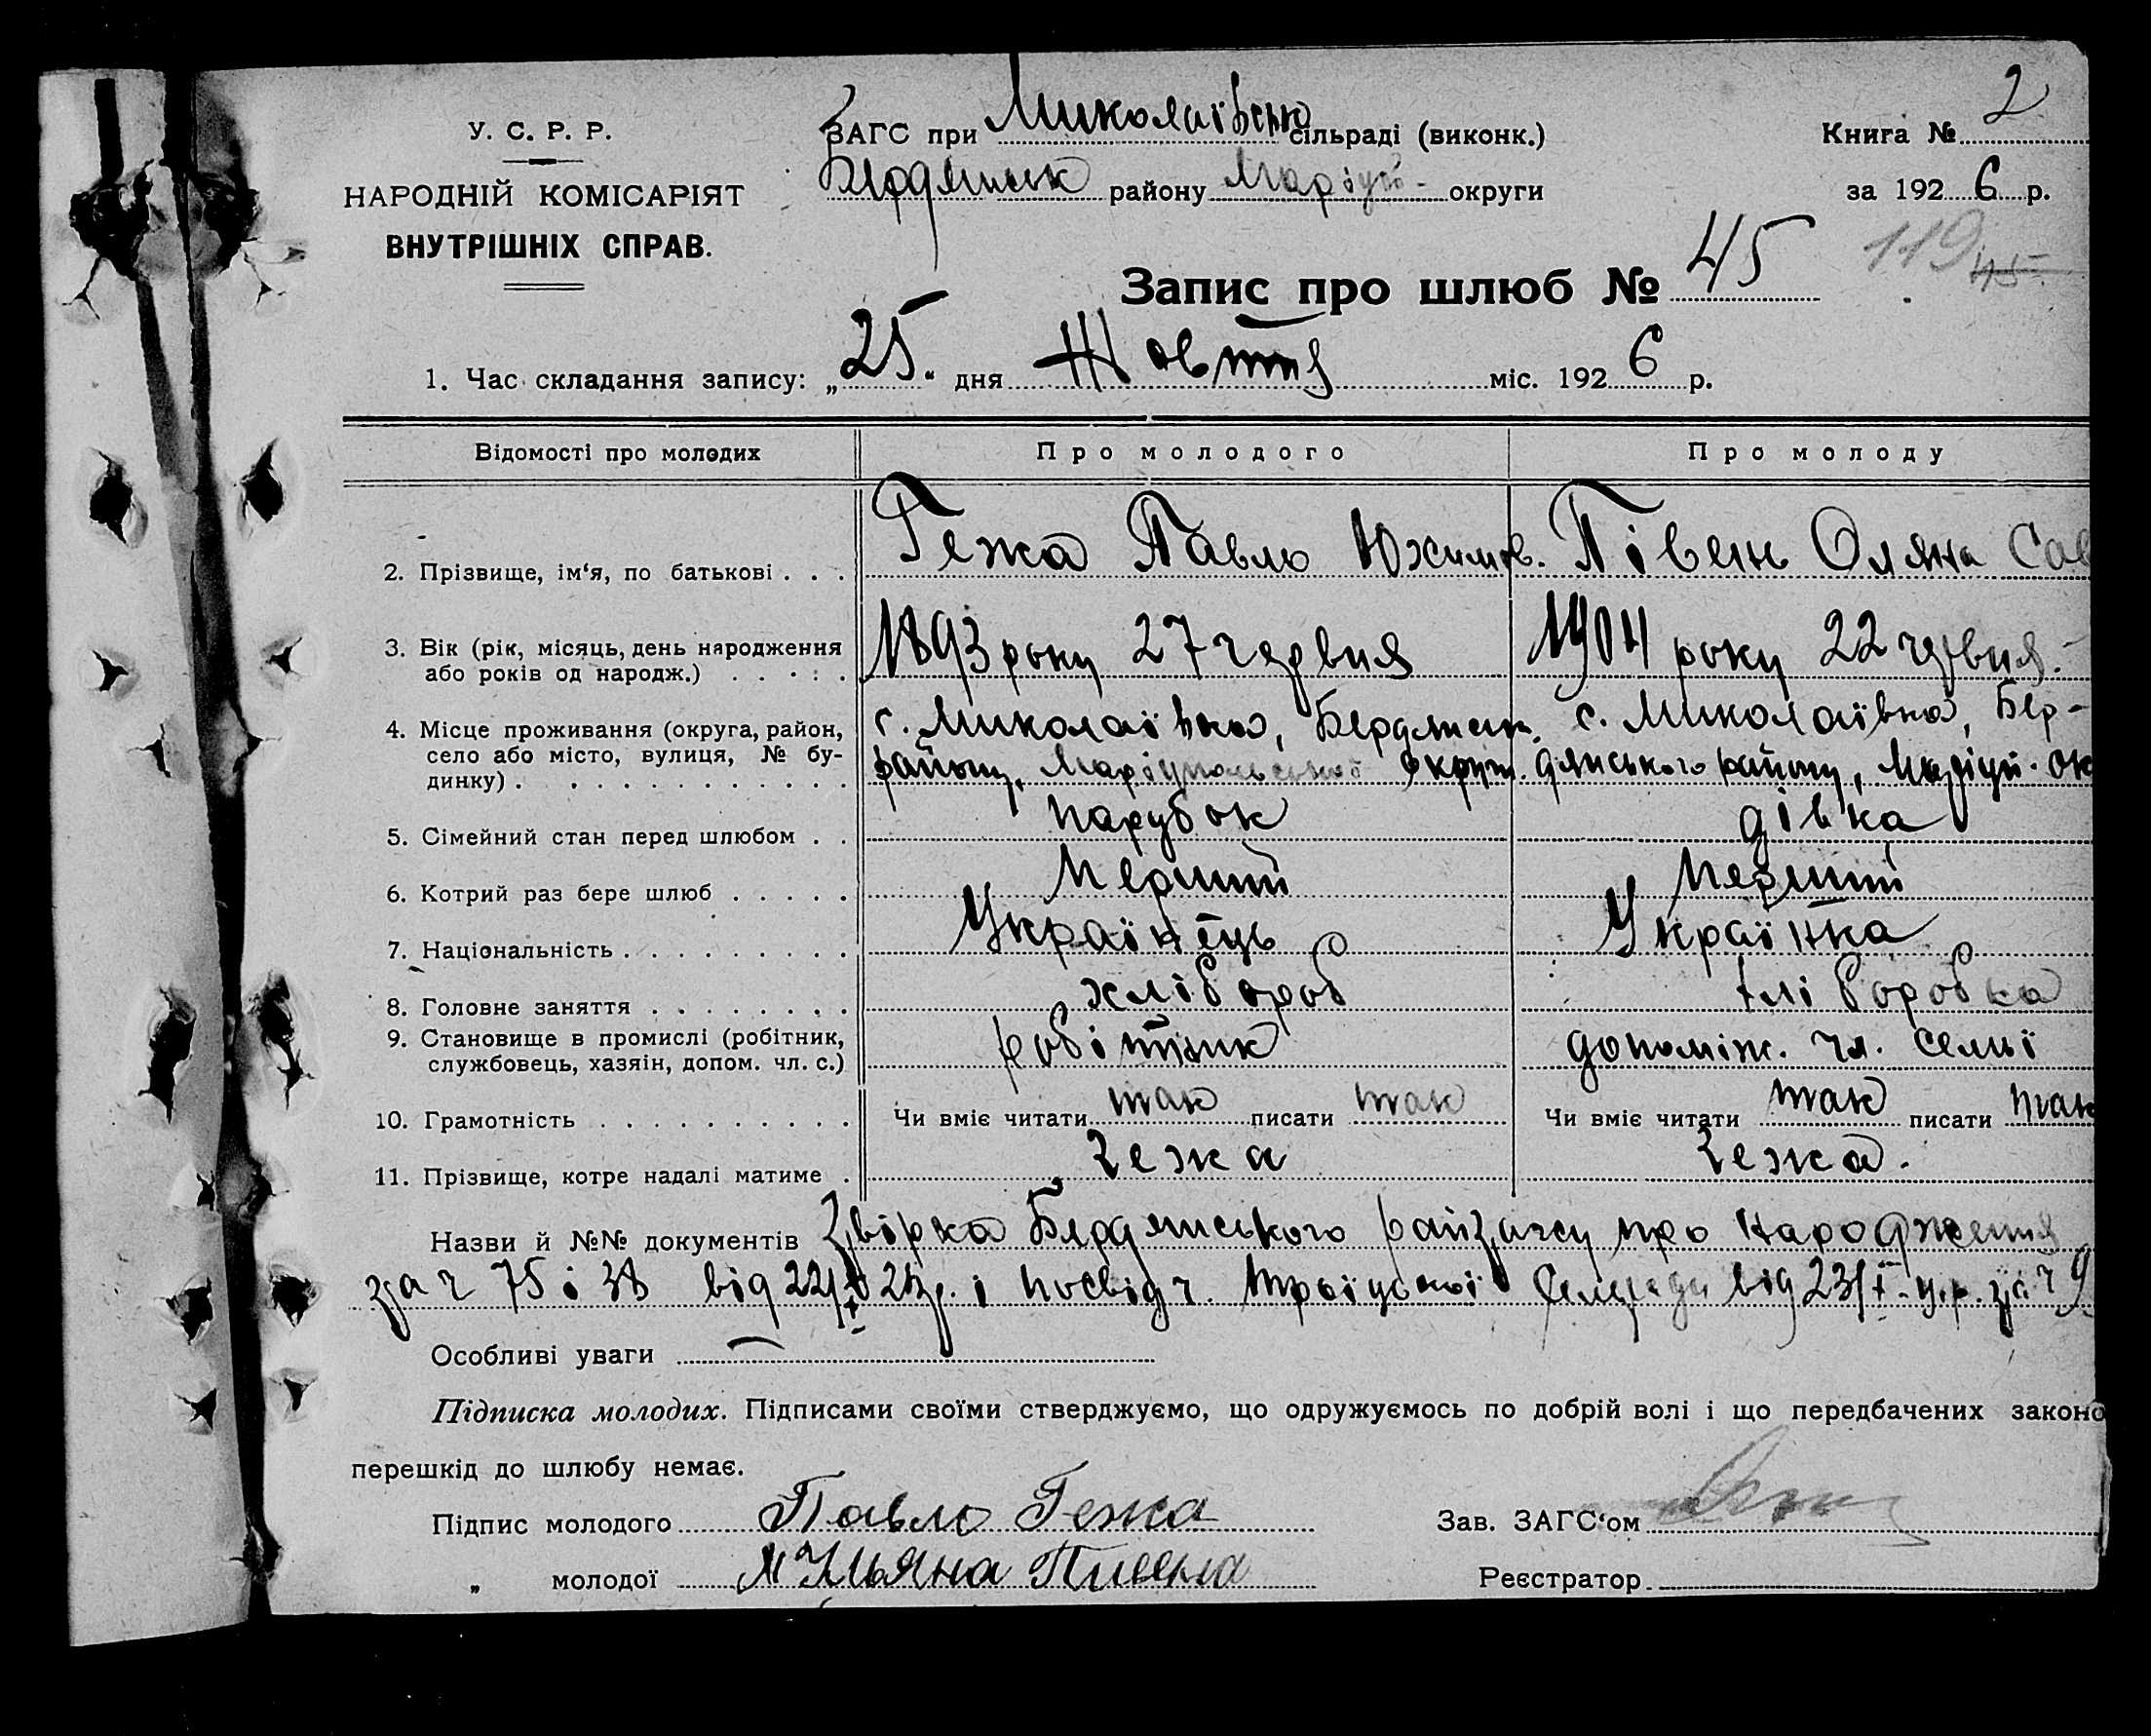 У. С. Р. Р.
НАРОДНІЙ КОМІСАРІЯТ
ВНУТРІШНІХ СПРАВ.
ЗАГС при Миколаївско сільраді (виконк.)
Бердянськ району Маріуп- округи
Книга № 2
за 1926 р.
Запис про шлюб № 45
119 45
1. Час складання запису: „25.“ дня Жовтня міс. 1926 р.
Відомості про молодих Про молодого Про молоду
2. Прізвище, ім‘я, по батькові . . . Гежа Павло Юхимов. Півень Оляна Сав
3. Вік (рік, місяць, день народження
або років од народж.) 1893 року 27 червня 1904 року 22 червня.
4. Місце проживання (округа, район, с. Миколаївка, Бердянськ. с. Миколаївка, Бер-
село або місто, вулиця, № бу-
динку) . району, Маріупольської округи. дянського району, Маріуп. ок
5. Сімейний стан перед шлюбом . . парубок дівка
6. Котрий раз бере шлюб . . . . . Перший Перший
7. Національність . . . . . . . . . Українець Українка
8. Головне заняття . . . . . . . . хлібороб хліборобка
9. Становище в промислі (робітник,
службовець, хазяїн, допом. чл. с.) робітник допоміж. чл. семьї
10. Грамотність . . . . . . . . . . Чи вміє читати так писати так Чи вміє читати так писати так
11. Прізвище, котре надалі матиме . Гежа Гежа.
Назви й №№ документів Звірка Бердянського райзагсу про народження
за ч 75 і 38 від 22/X 26р. і посвідч. Троїцької Сельради від 23/X ц.р. за ч 9
Особливі уваги —
Підписка молодих. Підписами своїми стверджуємо, що одружуємось по добрій волі і що передбачених законо
перешкід до шлюбу немає.
Підпис молодого Павло Гежа Зав. ЗАГС‘ом
„ молодої Ульяна Пивень Реєстратор